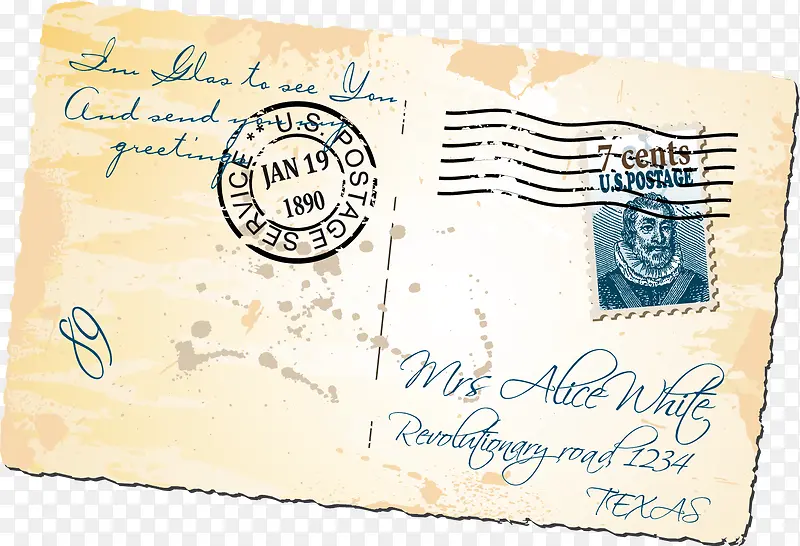 I'm Glas to see You
And send you my
greeting
U.S. POSTAGE SERVICE **
JAN 19
1890
7 cents
U.S.POSTAGE
89
Mrs Alice White
Revolutionary road 1234
TEXAS